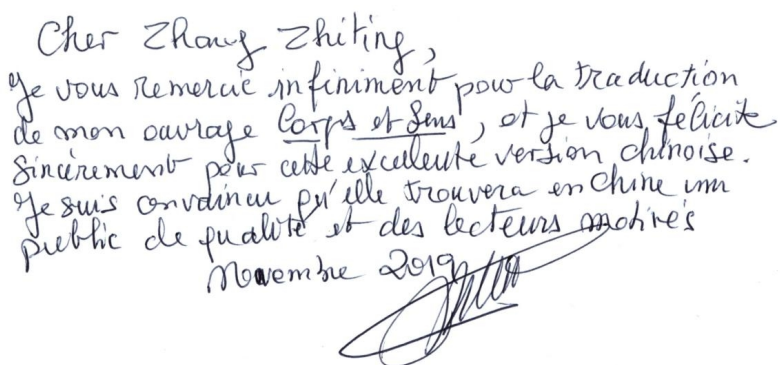 Cher Zhang Zhiting,
Je vous remercie infiniment pour la traduction
de mon ouvrage Corps et Sens, et je vous félicite
sincèrement pour cette excellente version chinoise.
Je suis convaincu qu'elle trouvera en Chine un
public de qualité et des lecteurs motivés
Novembre 2019